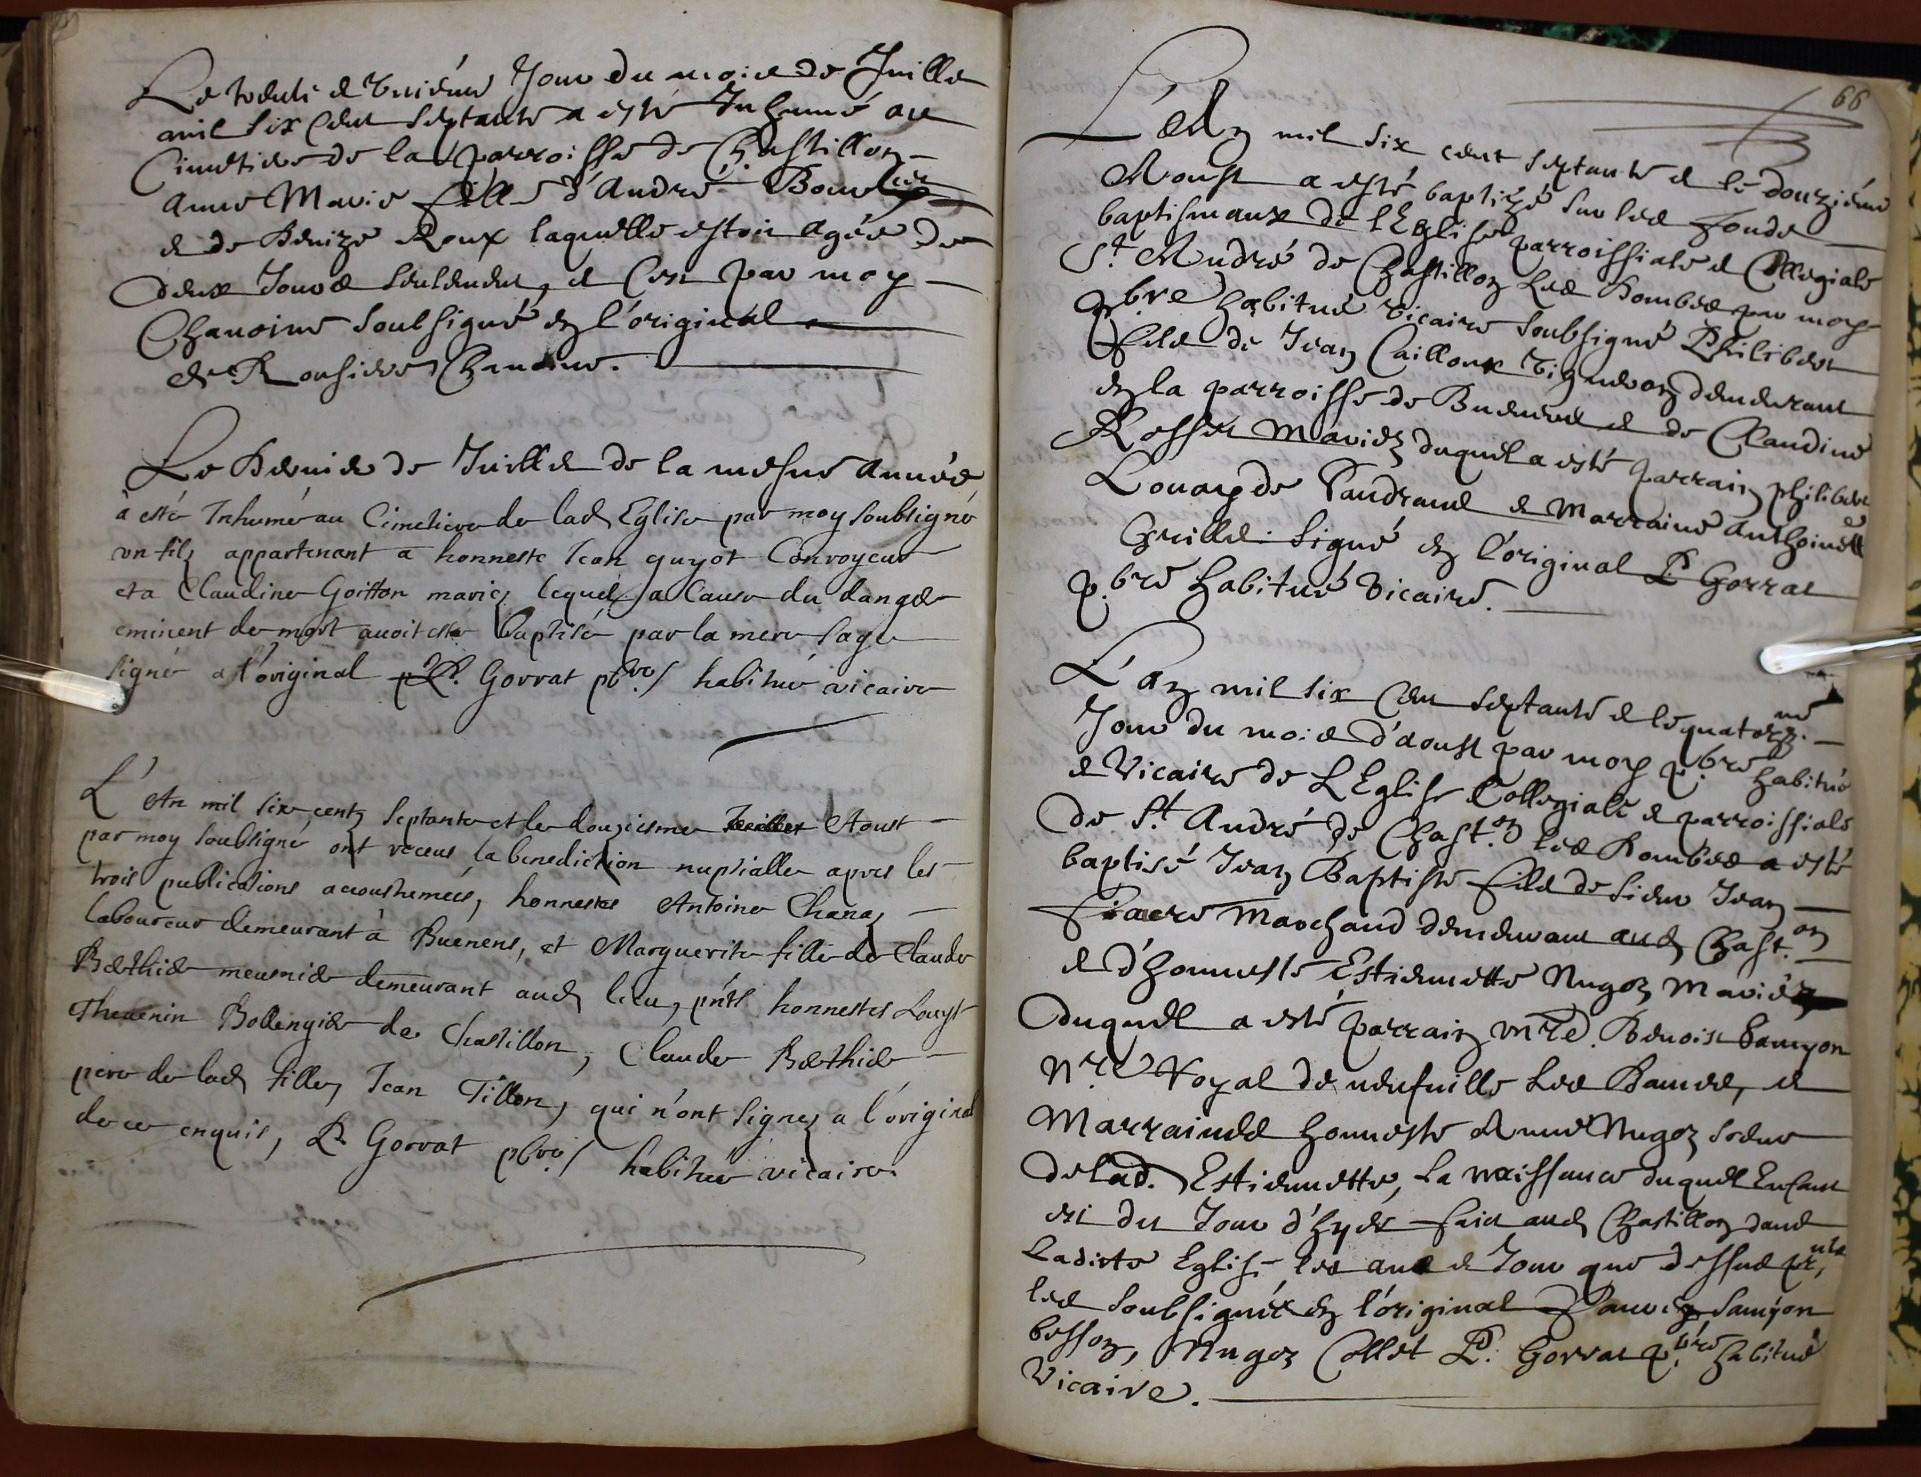 Le trente et uniéme Jour du mois de Juillet
mil six cent septante a esté Inhumé au
Cimetiere de la parroisse de Chastillon
Anne Marie fille d'André
et de Benize Roux laquelle estoit agée de
deux Jours seulement, et c'est par moy
Chanoine soubsigné en l'original
de Chanoine.
Le dernier de Juillet de la mesme année
à esté Inhumé au Cimetiere de lad Eglise par moy soubsigné
un filz appartenant a honneste Jean guyot Convoyeur
et a Claudine Goitton mariez lequel a Cause du danger
eminent de mort auoit esté baptisé par la mere sage
signé a l'original P. Gorrat pbre habitué vicaire
L'An mil six centz septante et le douziesme Aoust
par moy soubsigné ont receus la benediction nuptialle apres les
trois publications accoustumées, honnestes Antoine Chana
laboureur demeurant à Buenens, et Marguerite fille de Claude
Berthier meusnier demeurant aud lieu, pnts honnestes Louys
Thevenin Bollengier de Chastillon, Claude Berthier
pere de lad fille, Jean Tillon, qui n'ont signez a l'original
de ce enquis, P. Gorrat pbre habitué vicaire.
66
L'An mil six cent septante et le douziéme
Aoust a esté baptizé sur les fonds
baptismaux de l'Eglise parroissiale et Collegiale
St André de Chastillon les Dombes par moy
pbre habitué vicaire soubsigné Philibert
filz de Jean Cailloux vigneron demeurant
en la parroisse de Buenens et de Claudine
Rosset Mariez duquel a esté parrain philibert
Louoys de Sandrans et Marraine Anthoinette
Grille. signé en l'original P. Gorrat
pbré habitué vicaire.
L'an mil six cent septante et le quatorzme
Jour du mois d'aoust par moy pbre habitué
et Vicaire de L'Eglise Collegiale et parroissiale
de St. André de Chast.on les Dombes a esté
baptisé Jean Baptiste filz de sieur Jean
fiacre Marchand demeurant aud Chast.on
et d'honneste Estiennette Nugoz Mariez
duquel a esté parrain mre. Benoist Samyon
Nre Royal de neufuille les Dames, et
Marrainee honneste Anne Nugoz soeur
de lad. Estiennette, La naissance duquel Enfant
est du Jour d'hyer faict aud Chastillon dans
Ladicte Eglise les an et Jour que dessus pnts
les soubsignés en l'original Samÿon
besson, Nugoz Collet P. Gorrat pbre habitué
Vicaire.